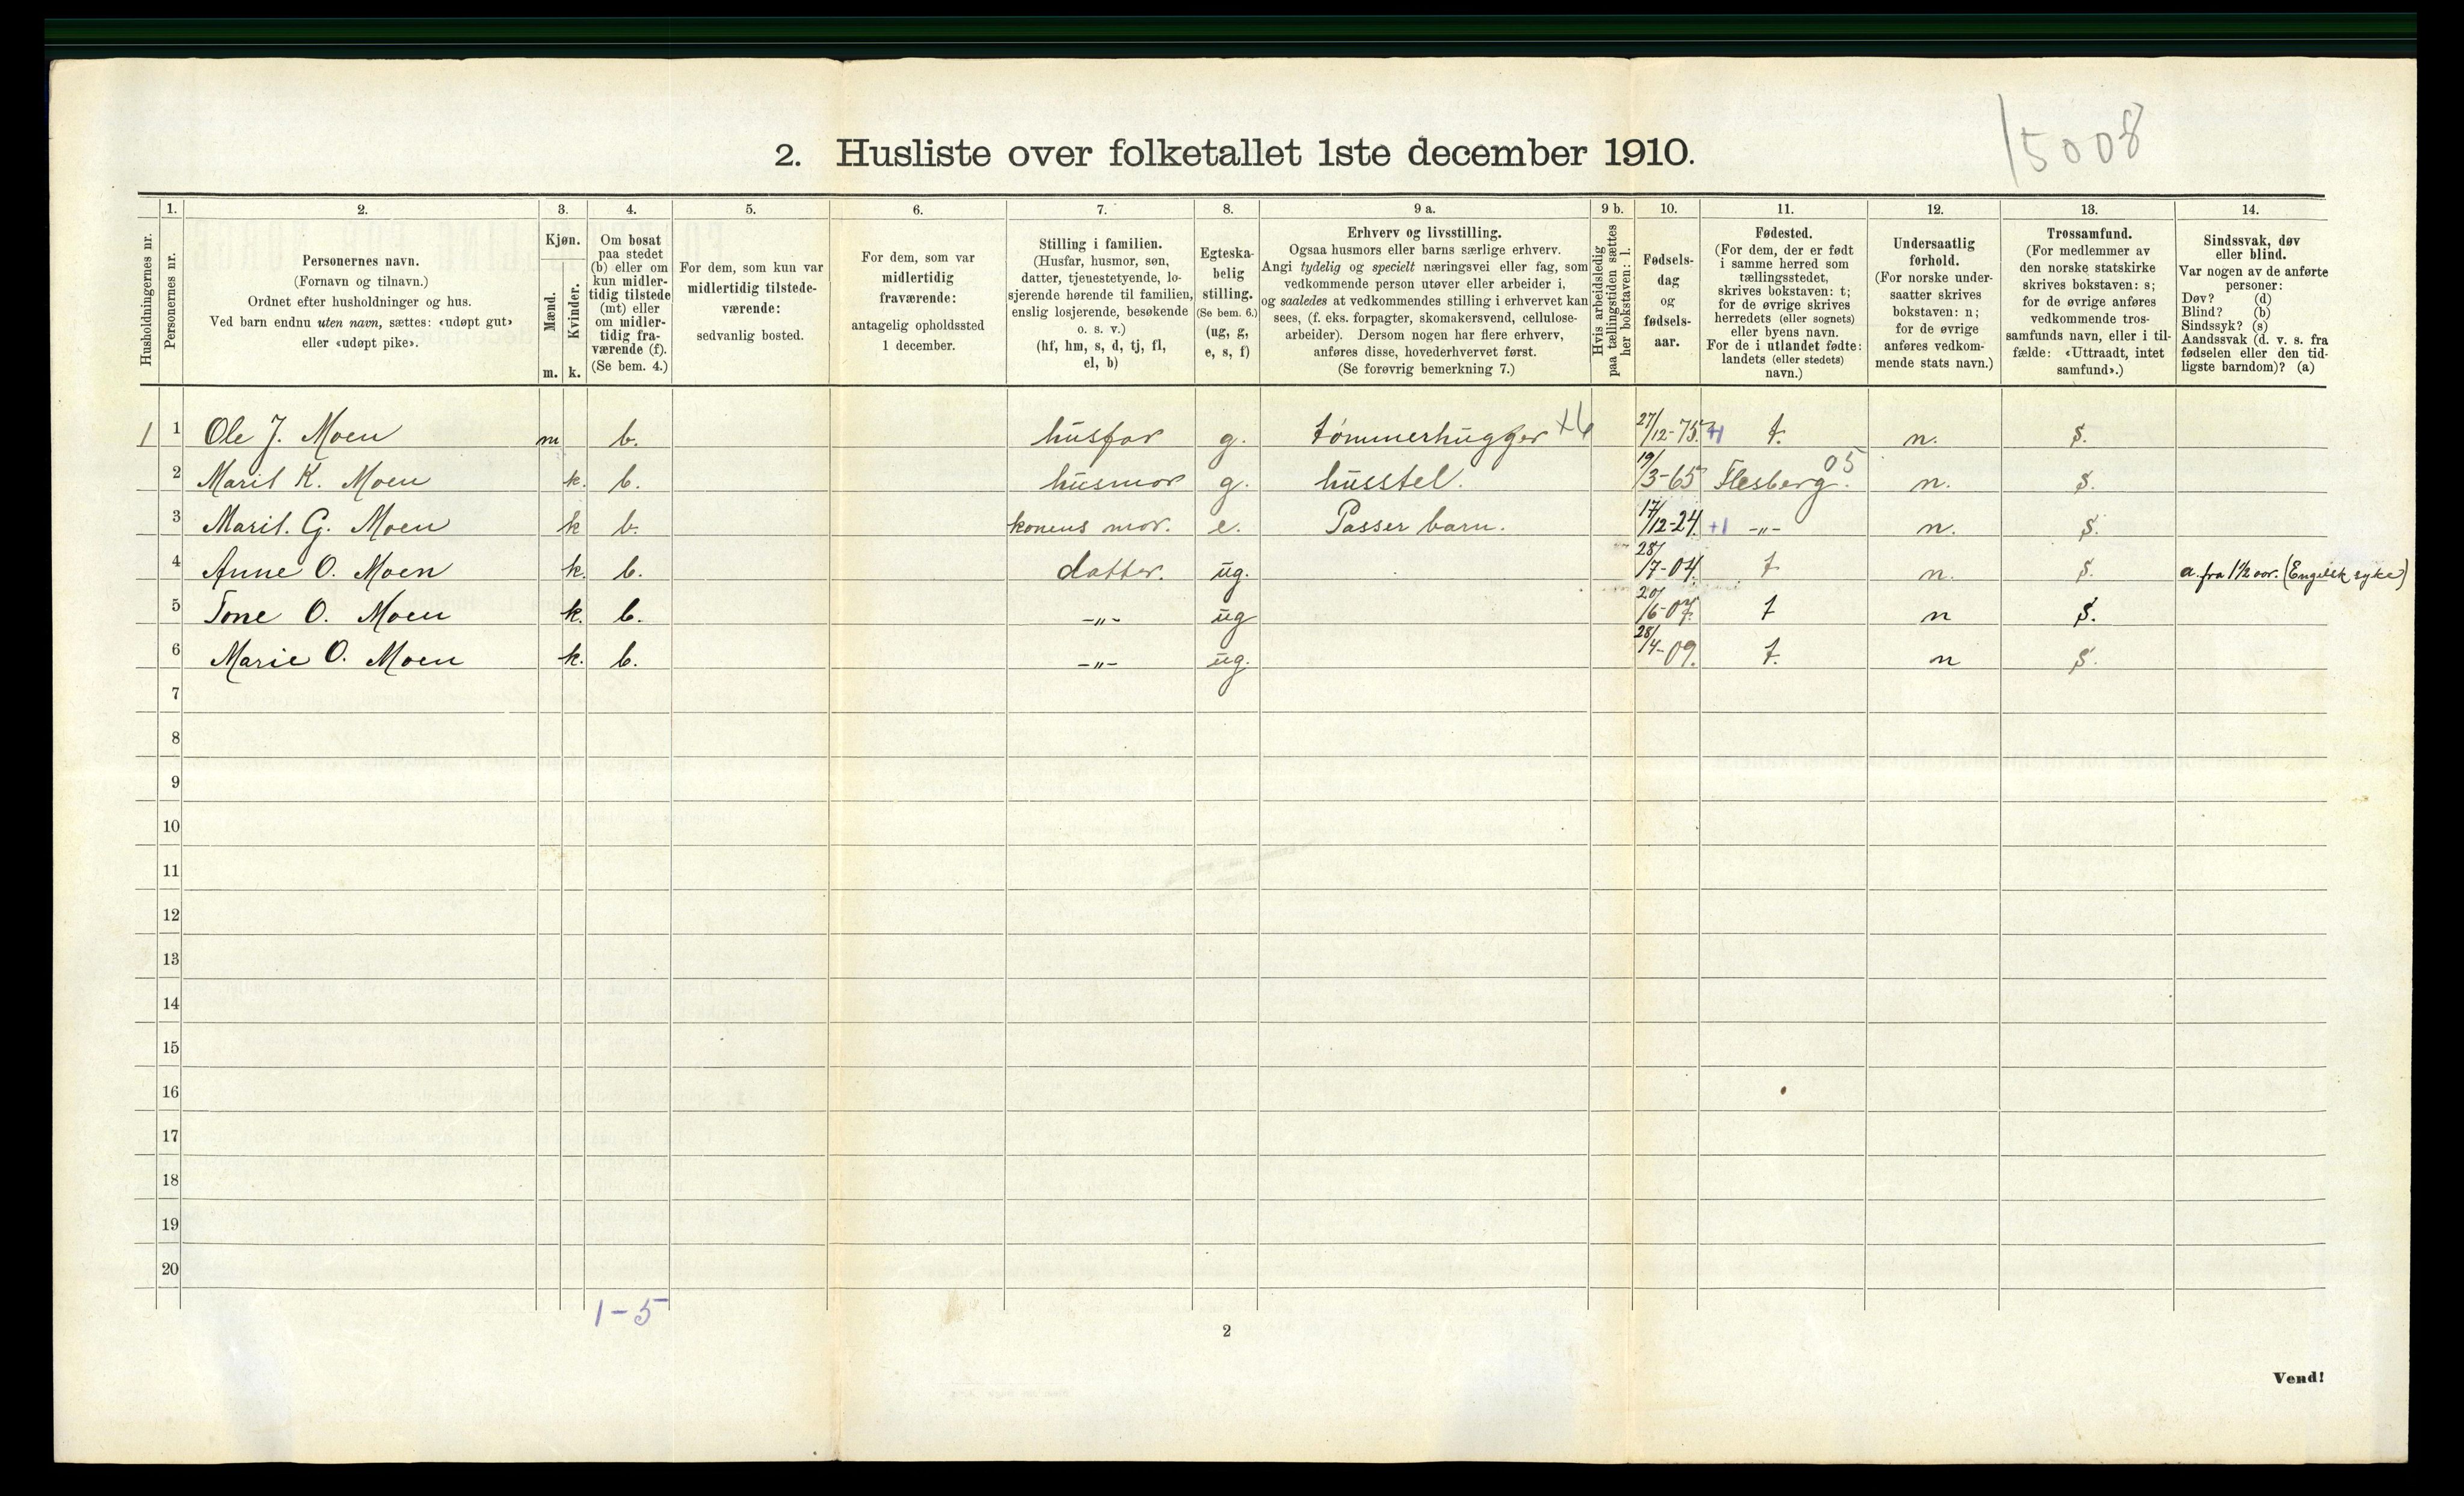 15008
2. Husliste over folketallet 1ste december 1910.
Husholdningernes nr.
1. Personernes nr.
2. Personernes navn.
(Fornavn og tilnavn.)
Ordnet efter husholdninger og hus.
Ved barn endnu uten navn, sættes: «udøpt gut»
eller «udøpt pike».
3. Kjøn.
Mænd. Kvinder.
m. k.
4. Om bosat
paa stedet
(b) eller om
kun midler-
tidig tilstede
(mt) eller
om midler-
tidig fra-
værende (f).
(Se bem. 4.)
5. For dem, som kun var
midlertidig tilstede-
værende:
sedvanlig bosted.
6. For dem, som var
midlertidig
fraværende:
antagelig opholdssted
1 december.
7. Stilling i familien.
(Husfar, husmor, søn,
datter, tjenestetyende, lo-
sjerende hørende til familien,
enslig losjerende, besøkende
o. s. v.)
(hf, hm, s, d, tj, fl,
el, b)
8. Egteska-
belig
stilling.
(Se bem. 6.)
(ug, g,
e, s, f)
9 a. Erhverv og livsstilling.
Ogsaa husmors eller barns særlige erhverv.
Angi tydelig og specielt næringsvei eller fag, som
vedkommende person utøver eller arbeider i,
og saaledes at vedkommendes stilling i erhvervet kan
sees, (f. eks. forpagter, skomakersvend, cellulose-
arbeider). Dersom nogen har flere erhverv,
anføres disse, hovederhvervet først.
(Se forøvrig bemerkning 7.)
9 b. Hvis arbeidsledig
paa tællingstiden sættes
her bokstaven: l.
10. Fødsels-
dag
og
fødsels-
aar.
11. Fødested.
(For dem, der er født
i samme herred som
tællingsstedet,
skrives bokstaven: t;
for de øvrige skrives
herredets (eller sognets)
eller byens navn.
For de i utlandet fødte:
landets (eller stedets)
navn.)
12. Undersaatlig
forhold.
(For norske under-
saatter skrives
bokstaven: n;
for de øvrige
anføres vedkom-
mende stats navn.)
13. Trossamfund.
(For medlemmer av
den norske statskirke
skrives bokstaven: s;
for de øvrige anføres
vedkommende tros-
samfunds navn, eller i til-
fælde: «Uttraadt, intet
samfund».)
14. Sindssvak, døv
eller blind.
Var nogen av de anførte
personer:
Døv? (d)
Blind? (b)
Sindssyk? (s)
Aandssvak (d. v. s. fra
fødselen eller den tid-
ligste barndom)? (a)
1 1 Ole J. Moen m b. husfar g. tømmerhugger 27/12-75. +1 t. n. s.
2 Marit K. Moen k. b. husmor g. husstel. 19/3-65 Flesberg. 05 n. s.
3 Marit. G. Moen k b. konens mor. e. Passer barn. 17/12-24. +1 -"- n. s.
4 Anne O. Moen k. b. datter. ug. 28/7-04. t n. s. a. fra 1½ aar. (Engelsk syke)
5 Tone O. Moen k. b. -"- ug 20/6-07. t n s.
6 Marie O. Moen k. b. -"- ug. 28/4-09. t. n s.
7
8
9
10
11
12
13
14
15
16
17
18
19
20
1-5
2
Vend!